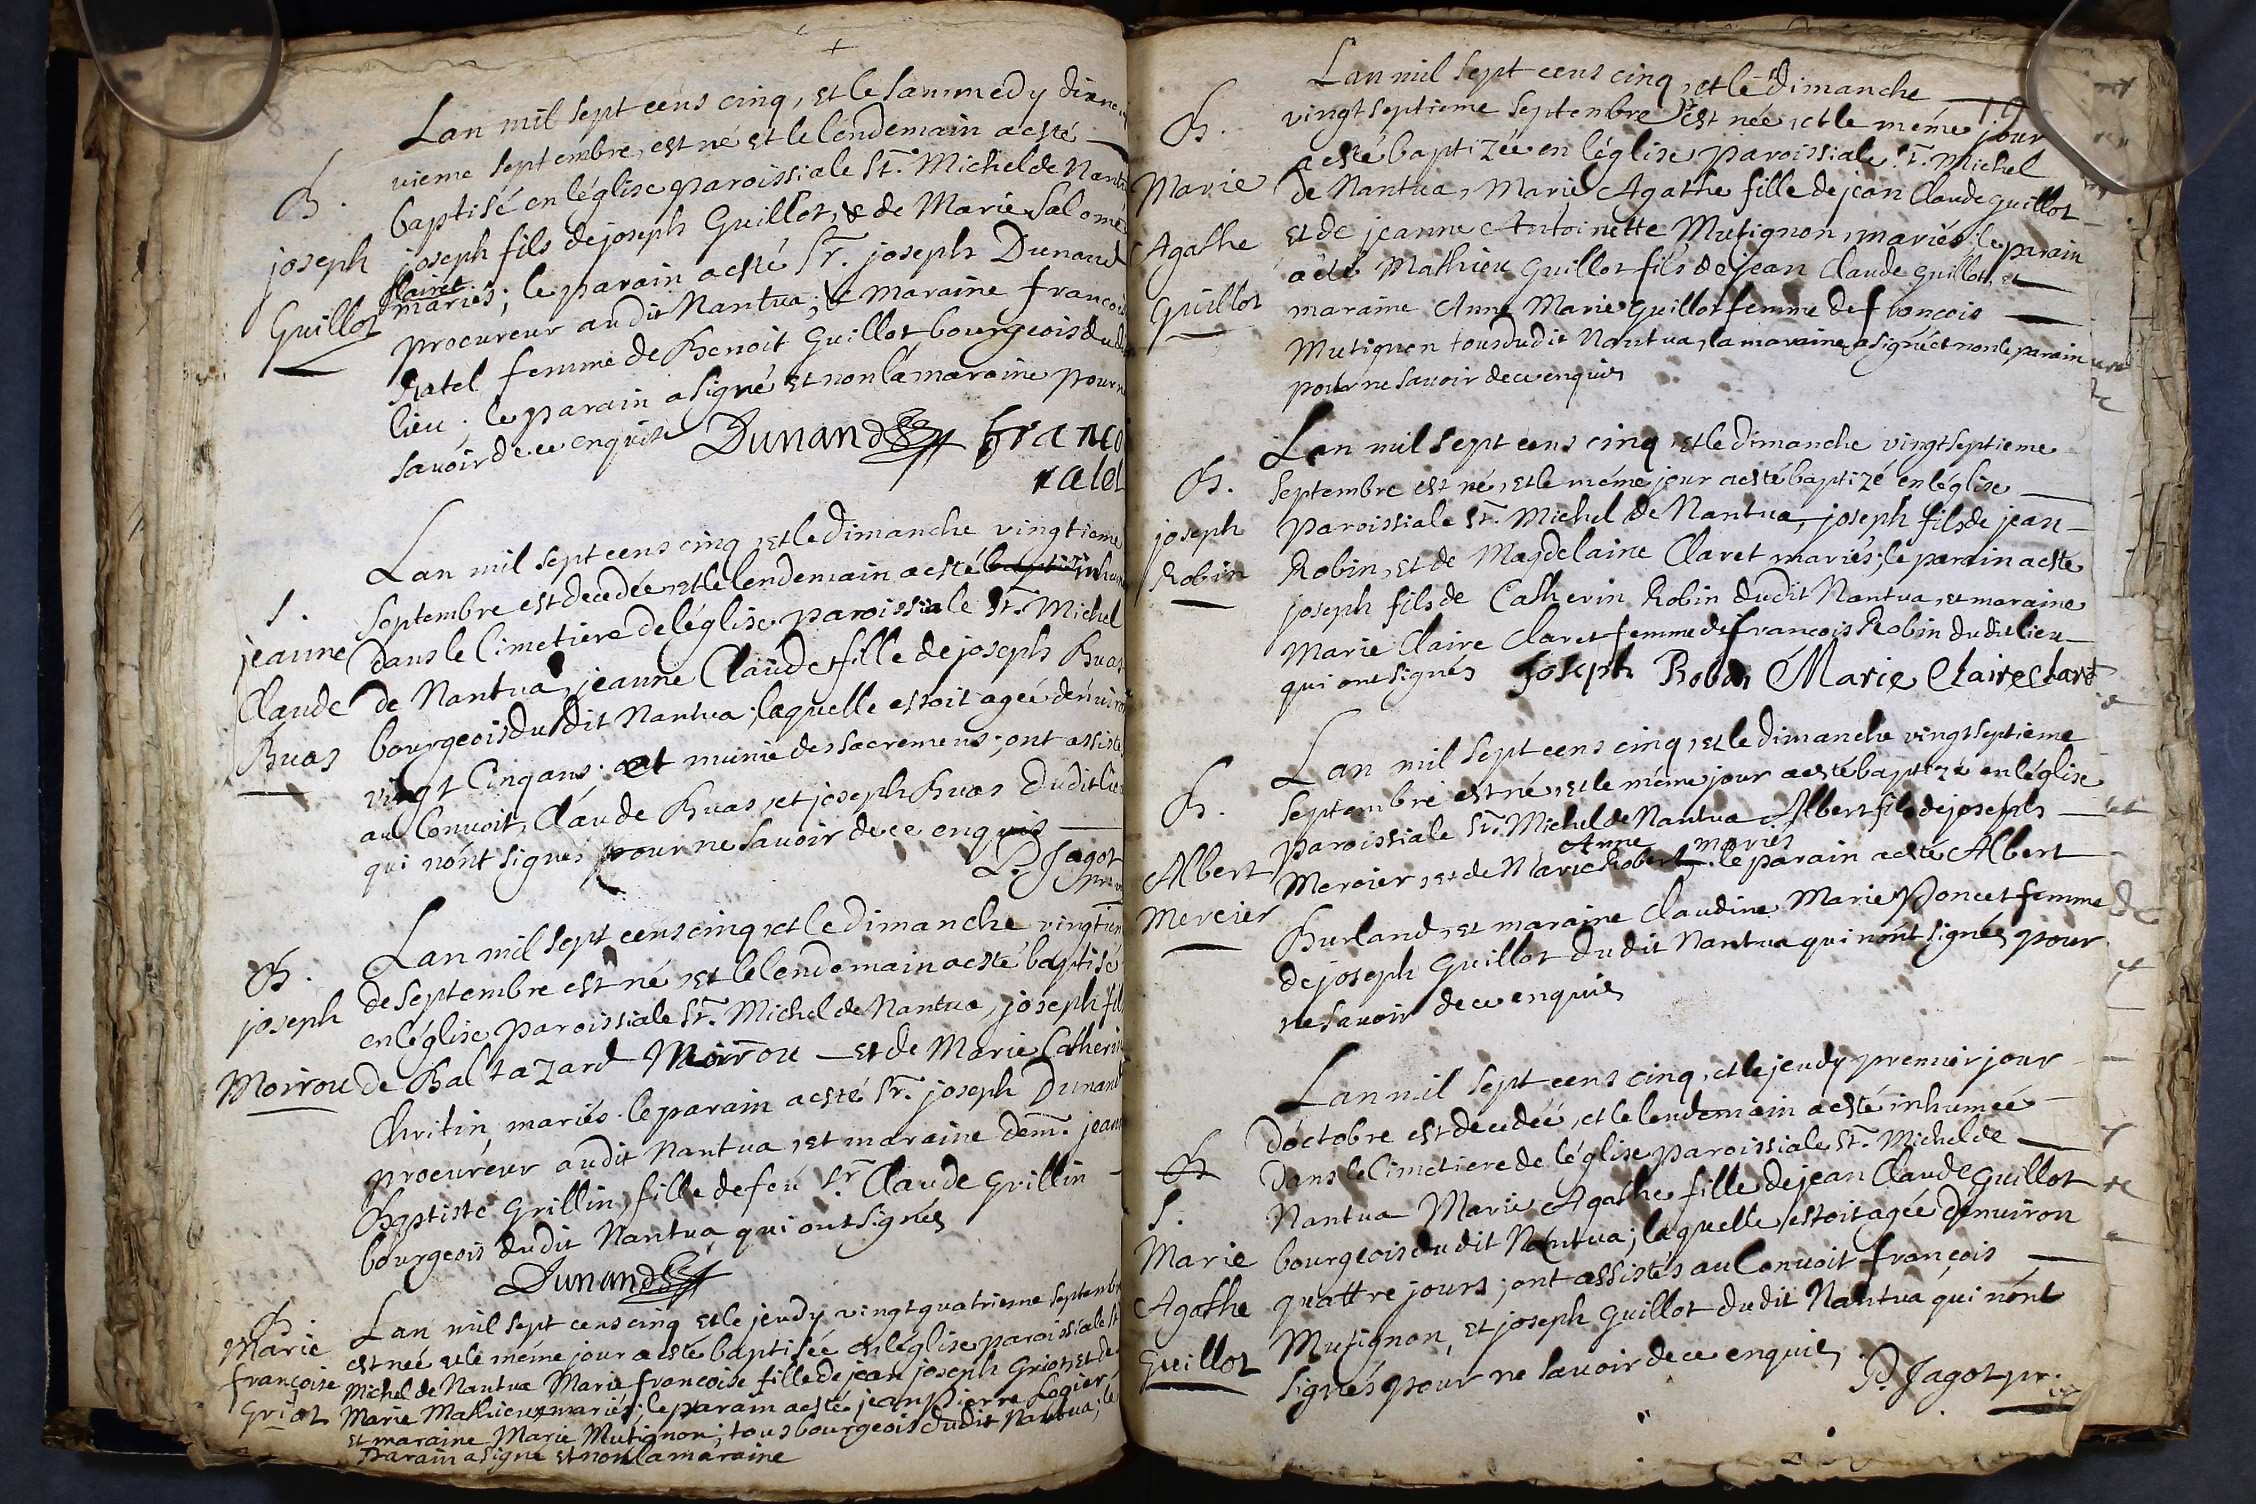 Lan mil sept cens cinq, et le sammedy dixneu
vieme septembre, est né et le lendemain a esté
baptisé en léglise paroissiale St. Michel de Nantu
joseph fils de joseph Guillot, & de Marie Salomé
Clairet
mariés; le parain a esté Sr. joseph Dunand
procureur audit Nantua; & maraine francois
Ratel femme de Benoit Guillot bourgeois dud
lieu; le parain a signé et non la maraine pour ne
savoir de ce enquise Dunand franco
ratel
B.
joseph
Guillot
Lan mil sept cens cinq, et le dimanche vingtieme
septembre est decedée, et le lendemain a esté inhu
dans le Cimetiere de léglise paroissiale St. Michel
de Nantua, jeanne Claude fille de joseph Buas
bourgeois dudit Nantua; laquelle estoit agée denuiro
vingt Cinq ans; et munie des sacremens; ont assisté
au Convoit, Claude Buas, et joseph Buas dudit lieu
qui nónt signés pour ne savoir de ce enquis
P. Jagot
S.
jeanne
Claude
Buas
Lan mil sept cens cinq, et le dimanche vingtiem
de septembre est né, et le lendemain a esté baptisé
en léglise paroissiale St. Michel de Nantua, joseph fils
de Baltazard Moirou et de Marie Catheri
Chritin, mariés. le parain a esté Sr. joseph Dunand
procureur audit Nantua, et maraine dem. jean
Baptiste Grillin, fille de feu Sr. Claude Grillin
bourgeois dudit Nantua qui ont signés
Dunand
B.
joseph
Moirou
Lan mil sept cens cinq et le jeudy vingt quatrieme septemb
est née et le méme jour a esté baptisée en léglise paroissiale St
Michel de Nantua Marie francoise fille de jean joseph Griot, et de
Marie Mathieu mariés; le parain a esté jean Pierre Logier
et maraine Marie Mutignon; tous bourgeois dudit Nantua; le
Parain a signé et non la maraine
B.
Marie
françoise
Griot
19
Lan mil sept cens cinq, et le dimanche
vingt septieme septembre est née, et le méme jour
a esté baptizée en léglise paroissiale St. Michel
de Nantua, Marie Agathe fille de jean Claude guillot
et de jeanne Antoinette Mutignon, mariés; le parain
a été Mathieu Guillot fils de jean Claude guillot, et
maraine Anne Marie guillot femme de françois
Mutignon tous dudit Nantua, la maraine a signé et non le parain
pour ne savoir de ce enquis
B.
Marie
Agathe
Guillot
Lan mil sept cens cinq, et le dimanche vingt septieme
septembre est né, et le méme jour a esté baptizé en léglise
paroissiale St. Michel de Nantua, joseph fils de jean
Robin, et de Magdelaine Claret mariés; le parain a este
joseph fils de Catherin Robin dudit Nantua, et maraine
Marie Claire Claret femme de françois Robin dudit lieu
qui ont signés Joseph Robin Marie Claire Claret
B.
joseph
Robin
Lan mil sept cens cinq, et le dimanche vingt septieme
septembre est né, et le méme jour a esté baptizé en léglise
paroissiale St. Michel de Nantua Albert fils de joseph
Anne mariés
Mercier, et de Marie Robert; le parain a esté Albert
Burland, et maraine Claudine Marie Poncet femme
de joseph Guillot dudit Nantua qui nónt signés pour
ne savoir de ce enquis
B.
Albert
Mercier
Lan mil sept cens cinq, et le jeudy premier jour
doctobre est decedéé, et le lendemain a esté inhumeé
dans le Cimetiere de léglise paroissiale St. Michel de
Nantua Marie Agathe fille de jean Claude guillot
bourgeois dudit Nantua; laquelle estoit agée denuiron
quattre jours; ont assistés au Convoit françois
Mutignon, et joseph guillot dudit Nantua qui nónt
signés pour ne savoir de ce enquis
P. Jagot pr.
B
S.
Marie
Agathe
Guillot